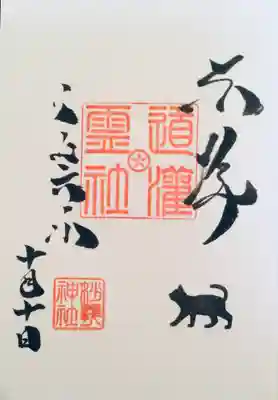 奉拝
道灌
霊社
令和六年
十月十日
妙義
神社